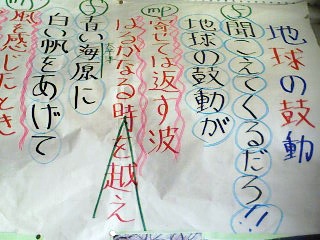 地球の鼓動
f
聞こえてくるだろ!!
地球の鼓動が
mp
寄せては返す波
はるかなる時を越え
f
青い海原に
白い帆をあげて
風を感じたとき